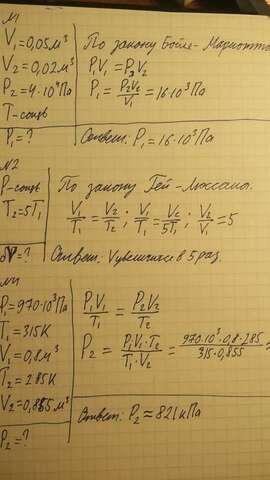 №1
V₁=0,05м³
V₂=0,02м³
P₂=4·10⁴Па
T-const
P₁=?
По закону Бойле-Мариотта
P₁V₁=P₂V₂
P₁=P₂V₂/V₁=16·10³Па
Ответ: P₁=16·10³Па
№2
P-const
T₂=5T₁
V=?
По закону Гей-Люссака.
V₁/T₁=V₂/T₂; V₁/T₁=V₂/5T₁; V₂/V₁=5
Ответ: V увеличился в 5 раз.
P₁=970·10³Па
T₁=315К
V₁=0,8м³
T₂=285К
V₂=0,855м³
P₂=?
P₁V₁/T₁=P₂V₂/T₂
P₂=P₁V₁·T₂/T₁·V₂=970·10³·0,8·285/315·0,855=
Ответ: P₂≈821кПа